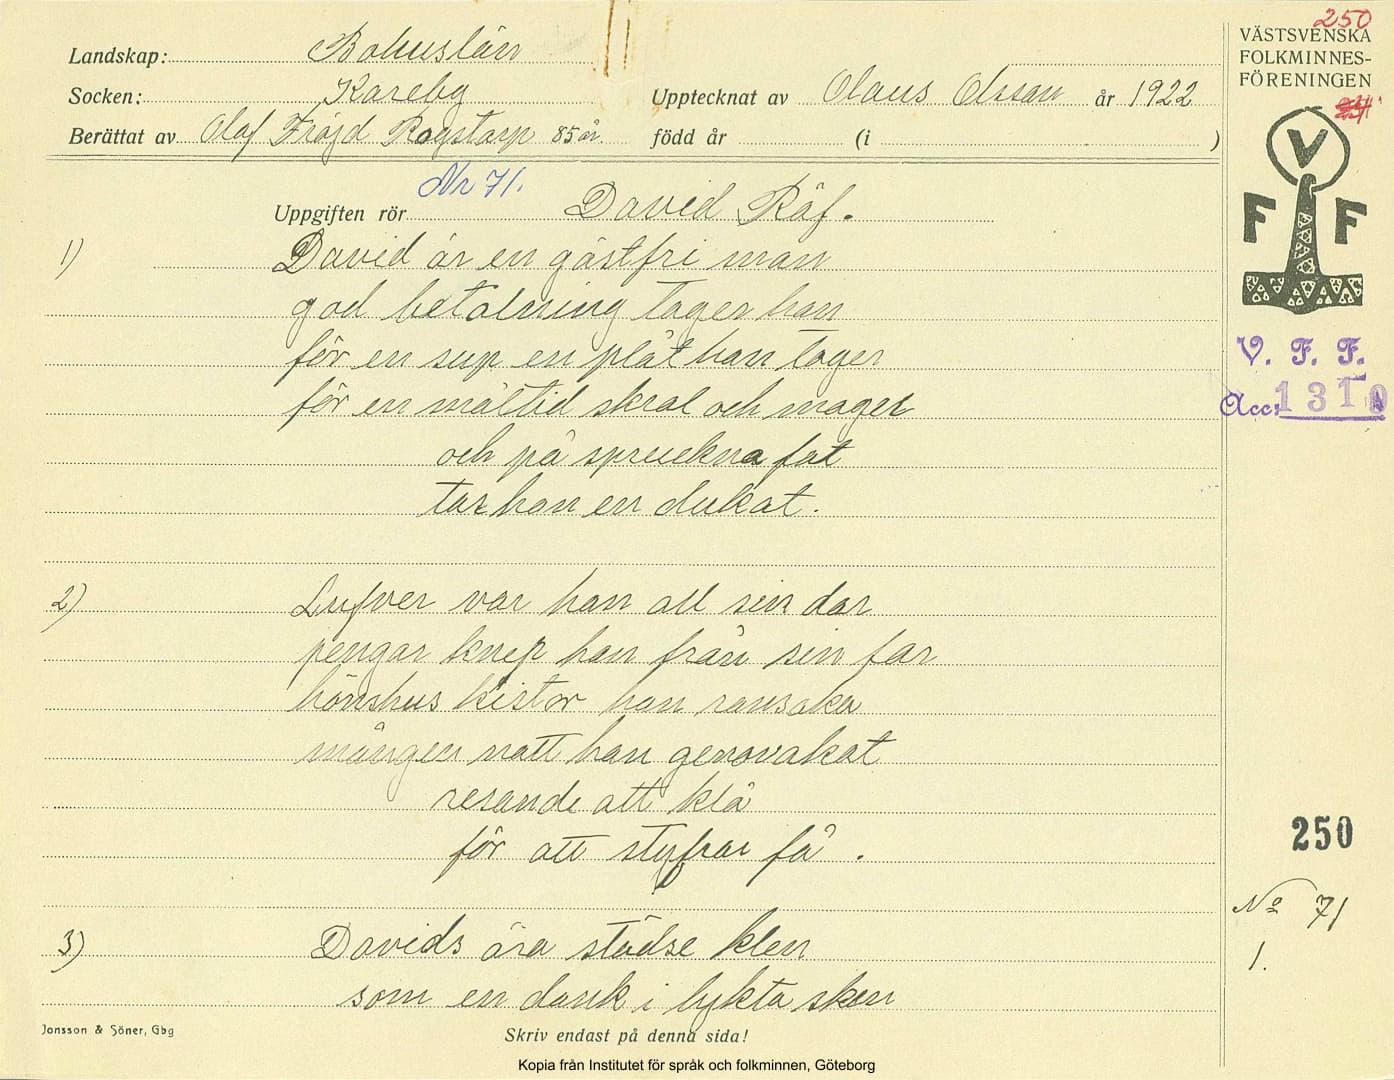 250
VÄSTSVENSKA
FOLKMINNES-
FÖRENINGEN
Landskap: Bohuslän
Socken: Kareby
Upptecknat av Olaus Olssan år 1922
Berättat av Olaf Fröjd Rogstarp 85 år.
född år (i )
V
F F
Nr 71.
Uppgiften rör David Räf.
1) David är en gästfri man
god betalning tager han
för en sup en plåt han tager
för en måltid skral och mager
och på spruckna fat
tar han en dukat.
V. F. F.
Acc: 1310
2) Lufver var han all sin dar
pengar knep han från sin far
hönshus kistor han ransaka
mången natt han genovakat
resande att klå
för att styfrar få.
250
No 71
1.
3) Davids ära städse klen
som en dank i lykta sken
Jonsson & Söner, Gbg
Skriv endast på denna sida!
Kopia från Institutet för språk och folkminnen, Göteborg